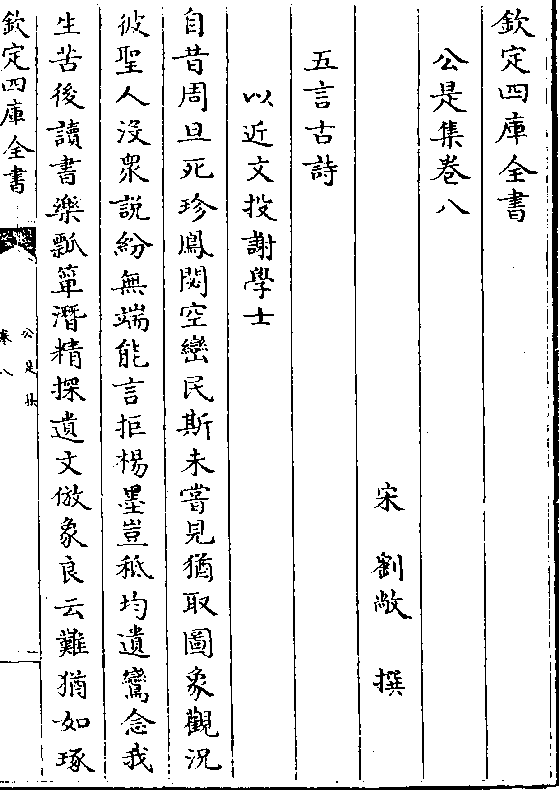 欽定四庫全書
公是集卷八
宋　劉敞　撰
五言古詩
以近文投謝學士
自昔周旦死珍鳳閟空巒民斯未嘗見猶取圖象觀況
彼聖人沒衆說紛無端能言拒楊墨豈秪均遺鸞念我
生苦後讀書樂瓢簞潛精探遺文倣象良云難猶如琢
欽定四庫全書
公是集
卷八